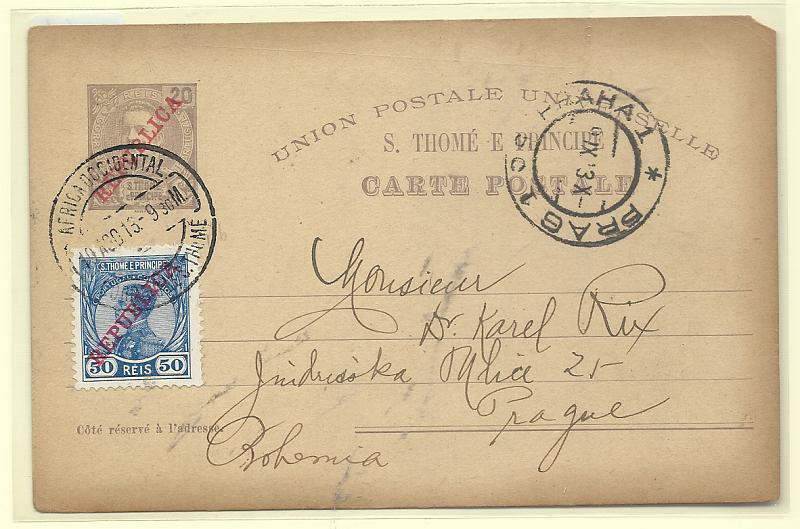 20
REIS
REPUBLICA
S. THOMÉ
UNION POSTALE UNIVERSELLE
S. THOMÉ E PRINCIPE
CARTE POSTALE
AFRICA OCCIDENTAL
10 AGO 13 - 9 30M
S. THOMÉ
PRAHA 1 * PRAG 1
IX 13 X-
S. THOME E PRINCIPE
REPUBLICA
50 REIS 50
Monsieur
Dr. Karel Rix
Jindrisška Ulice 25
Prague
Bohemia
Côté réservé à l'adresse.